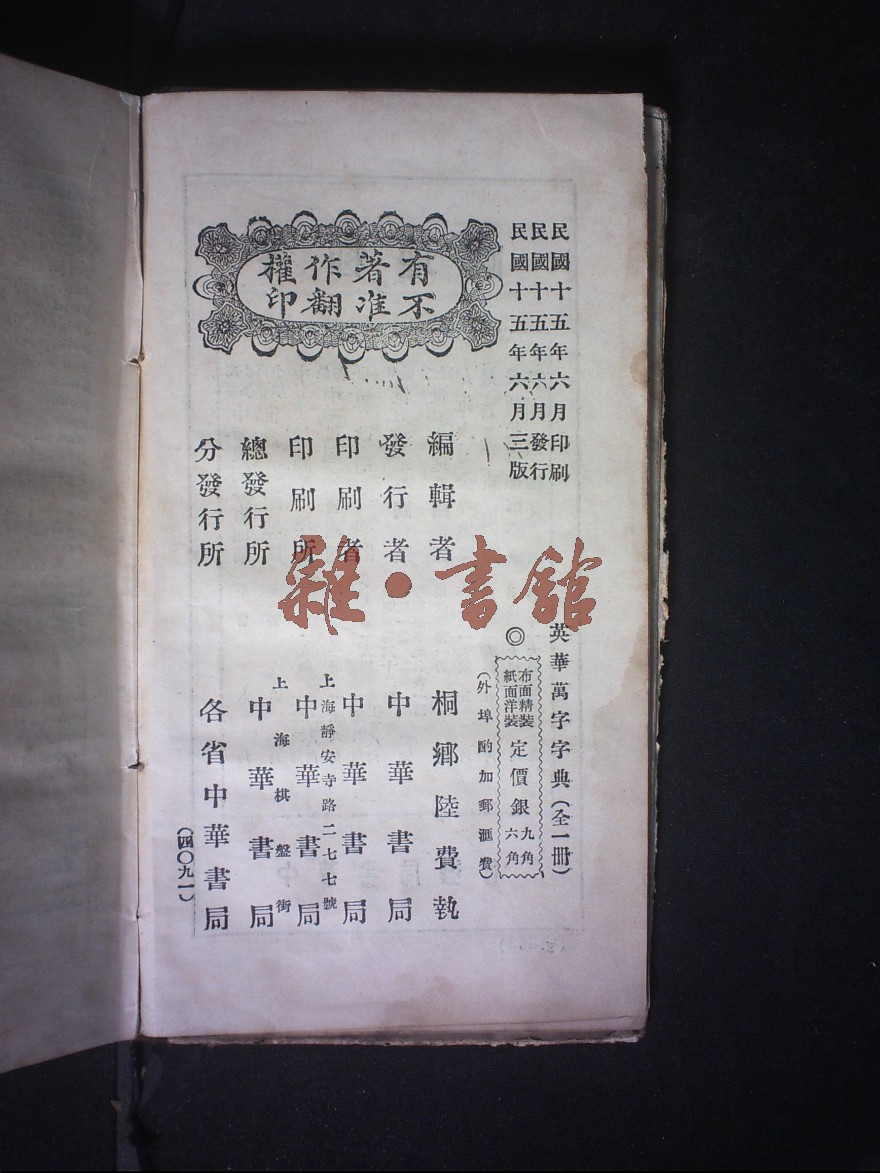 民國十五年六月印刷
民國十五年六月發行
民國十五年六月三版
英華萬字字典（全一冊）
◎
布面精裝 定價銀 九角
紙面洋裝 六角
（外埠酌加郵滙費）
有著作權
不准翻印
編輯者 桐鄉陸費執
發行者 中華書局
印刷者 中華書局
上海靜安寺路二七七號
印刷所 中華書局
上海棋盤街
總發行所 中華書局
分發行所 各省中華書局
（四〇九一）
雜·書館